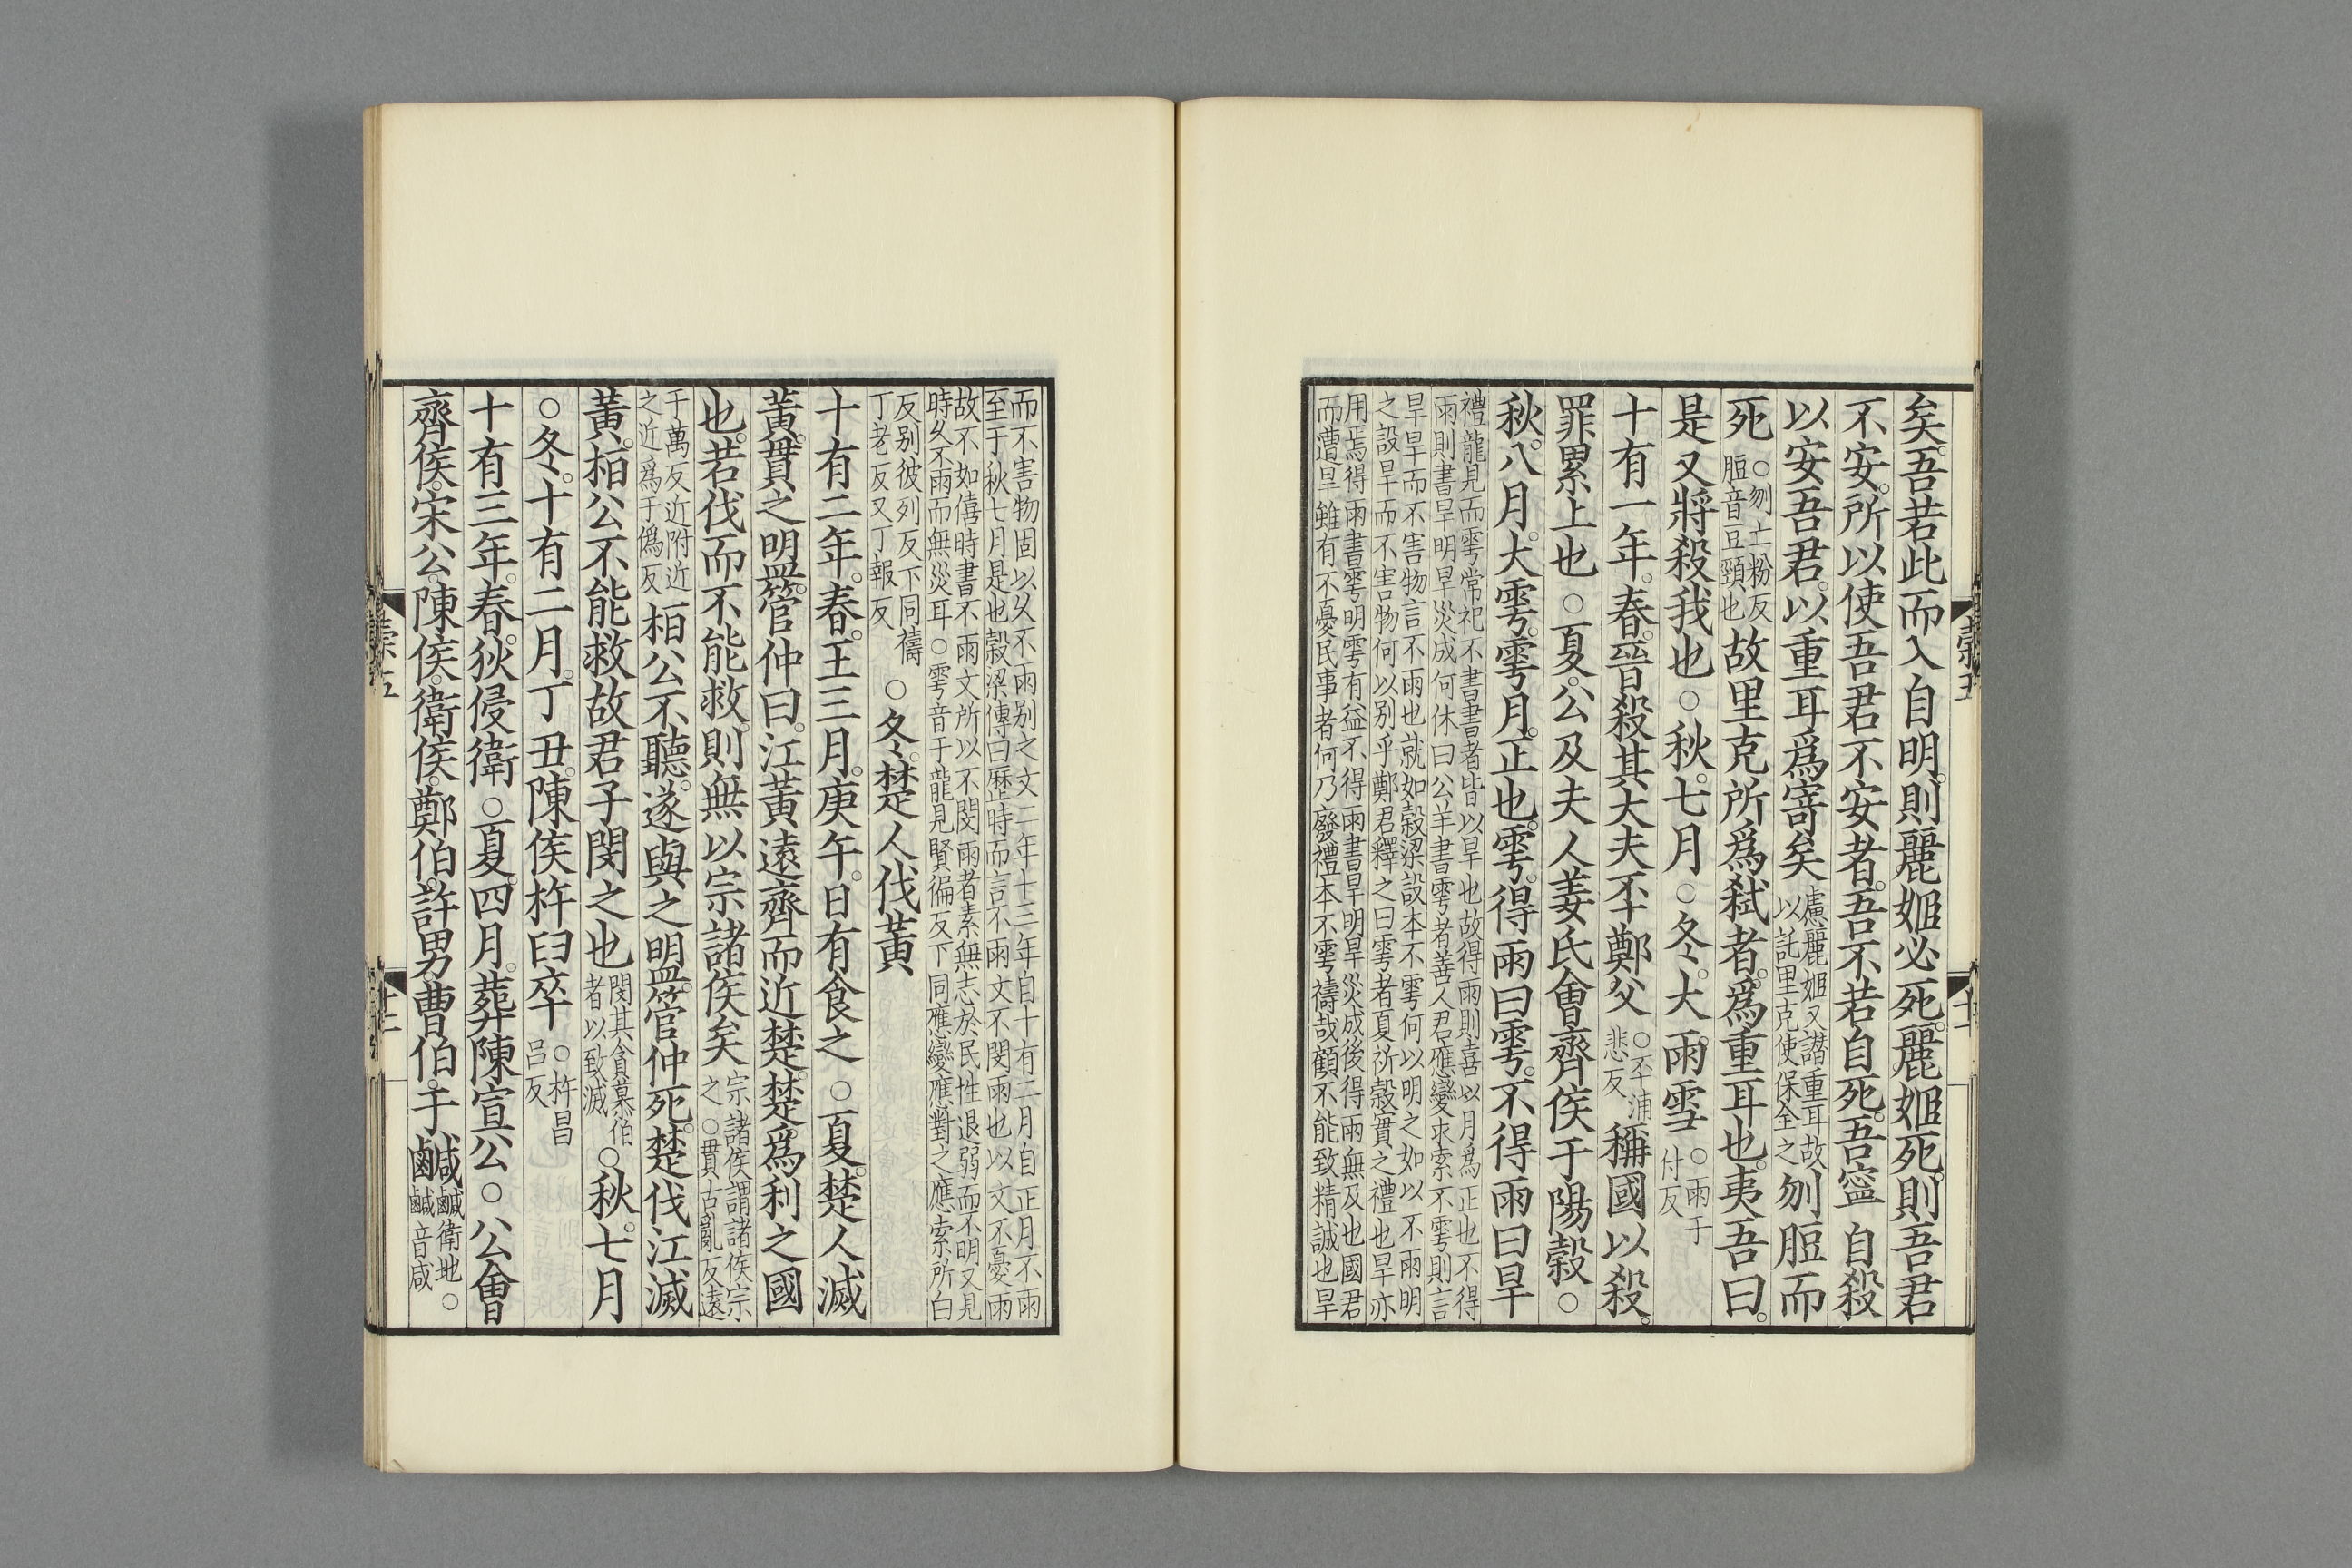 矣。吾若此而入自明。則麗姬必死。麗姬死。則吾君
不安。所以使吾君不安者。吾不若自死。吾寧自殺
以安吾君。以重耳爲寄矣慮麗姬又譖重耳故
以託里克使保全之刎脰而
死○刎亡粉反
脰音豆頸也故里克所爲弑者。爲重耳也。夷吾曰。
是又將殺我也○秋。七月○冬。大雨雪○雨于
付反
十有一年。春。晉殺其大夫丕鄭父○丕浦
悲反稱國以殺。
罪累上也○夏。公及夫人姜氏會齊侯于陽穀○
秋。八月。大雩。雩月。正也。雩。得雨曰雩。不得雨曰旱
禮龍見而雩常祀不書書者皆以旱也故得雨則喜以月爲正也不得
雨則書旱明旱災成何休曰公羊書雩者善人君應變求索不雩則言
旱旱而不害物言不雨也就如穀梁設本不雩何以明之如以不雨明
之設旱而不害物何以别乎鄭君釋之曰雩者夏祈穀實之禮也旱亦
用焉得雨書雩明雩有益不得雨書旱明旱災成後得雨無及也國君
而遭旱雖有不憂民事者何乃廢禮本不雩禱哉顧不能致精誠也旱
穀五
十一
而不害物固以久不雨别之文二年十三年自十有二月自正月不雨
至于秋七月是也穀梁傳曰歷時而言不雨文不閔雨也以文不憂雨
故不如僖時書不雨文所以不閔雨者素無志於民性退弱而不明又見
時久不雨而無災耳○雩音于龍見賢徧反下同應變應對之應索所白
反别彼列反下同禱
丁老反又丁報反○冬。楚人伐黄
十有二年。春。王三月。庚午。日有食之○夏。楚人滅
黄。貫之明盟。管仲曰。江黄遠齊而近楚。楚爲利之國
也。若伐而不能救。則無以宗諸侯矣宗諸侯謂諸侯宗
之○貫古亂反遠
于萬反近附近
之近爲于僞反桓公不聽。遂與之盟。管仲死。楚伐江滅
黄。桓公不能救故君子閔之也閔其貪慕伯
者以致滅○秋。七月
○冬。十有二月。丁丑。陳侯杵臼卒○杵昌
吕反
十有三年。春。狄侵衛○夏。四月。葬陳宣公○公會
齊侯。宋公。陳侯。衛侯。鄭伯。許男。曹伯。于鹹鹹衛地○
鹹音咸
十二